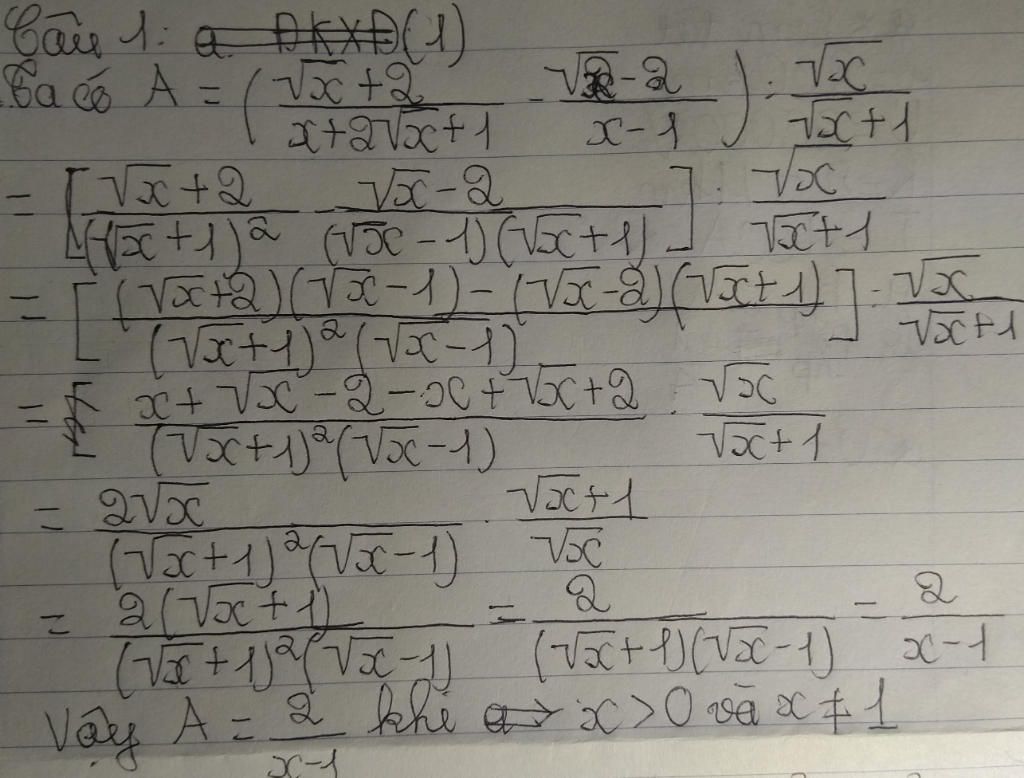 Câu 1: a. ĐKXĐ (1)
Ta có A = ( (√x + 2)/(x + 2√x + 1) - (√x - 2)/(x - 1) ) : √x/(√x + 1)
= [ (√x + 2)/(√x + 1)² - (√x - 2)/((√x - 1)(√x + 1)) ] : √x/(√x + 1)
= [ ((√x + 2)(√x - 1) - (√x - 2)(√x + 1))/((√x + 1)²(√x - 1)) ] : √x/(√x + 1)
= (x + √x - 2 - x + √x + 2)/((√x + 1)²(√x - 1)) : √x/(√x + 1)
= 2√x/((√x + 1)²(√x - 1)) . (√x + 1)/√x
= 2(√x + 1)/((√x + 1)²(√x - 1)) = 2/((√x + 1)(√x - 1)) = 2/(x - 1)
Vậy A = 2/(x - 1) khi x > 0 và x ≠ 1